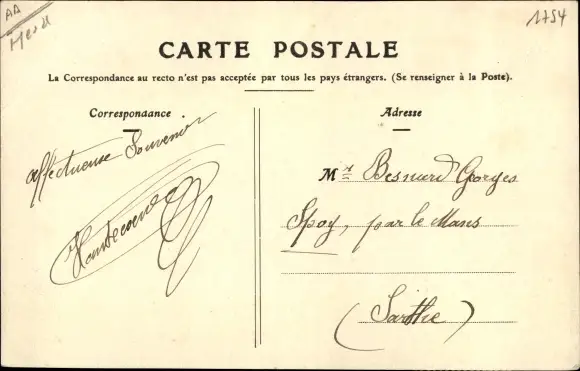 AA
1754
CARTE POSTALE
La Correspondance au recto n'est pas acceptée par tous les pays étrangers. (Se renseigner à la Poste).
Correspondaance
affectueuse Souvenir
Adresse
Mr Besnard Georges
Spoy, par le Mans
(Sarthe)